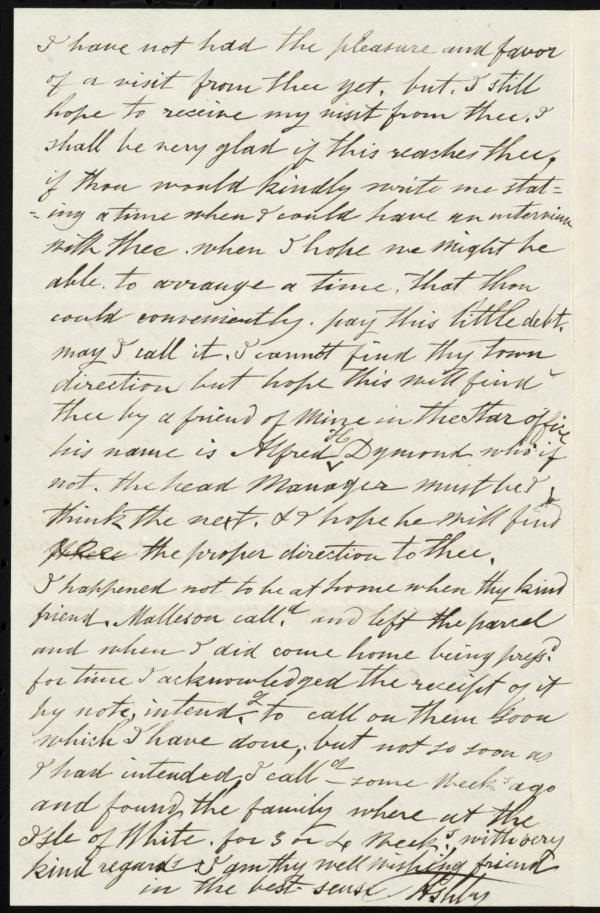 I have not had the pleasure and favor
of a visit from thee yet. but. I still
hope to receive my visit from thee. I
shall be very glad if this reaches thee,
if thou would kindly write me stat=
=ing a time when I could have an interview
with thee. when I hope we might be
able. to arrange a time. that thou
could conveniently. pay this little debt.
may I call it. I cannot find thy town
direction but hope this will find
thee by a friend of mine in the Star office
his name is Alfred H Dymond who if
not. the head Manager must be I
think the next. & I hope he will find
the proper direction to thee.
I happened not to be at home when thy kind
friend. Malleson call.d and left the parcel
and when I did come home being press.d
for time I acknowledged the receipt of it
by note, intend.g to call on them soon
which I have done, but not so soon as
I had intended, I call.d some weeks ago
and found the family where at the
Isle of White. for 3 or 4 weeks, with very
kind regards I am thy well wishing friend
in the best sense Ashby